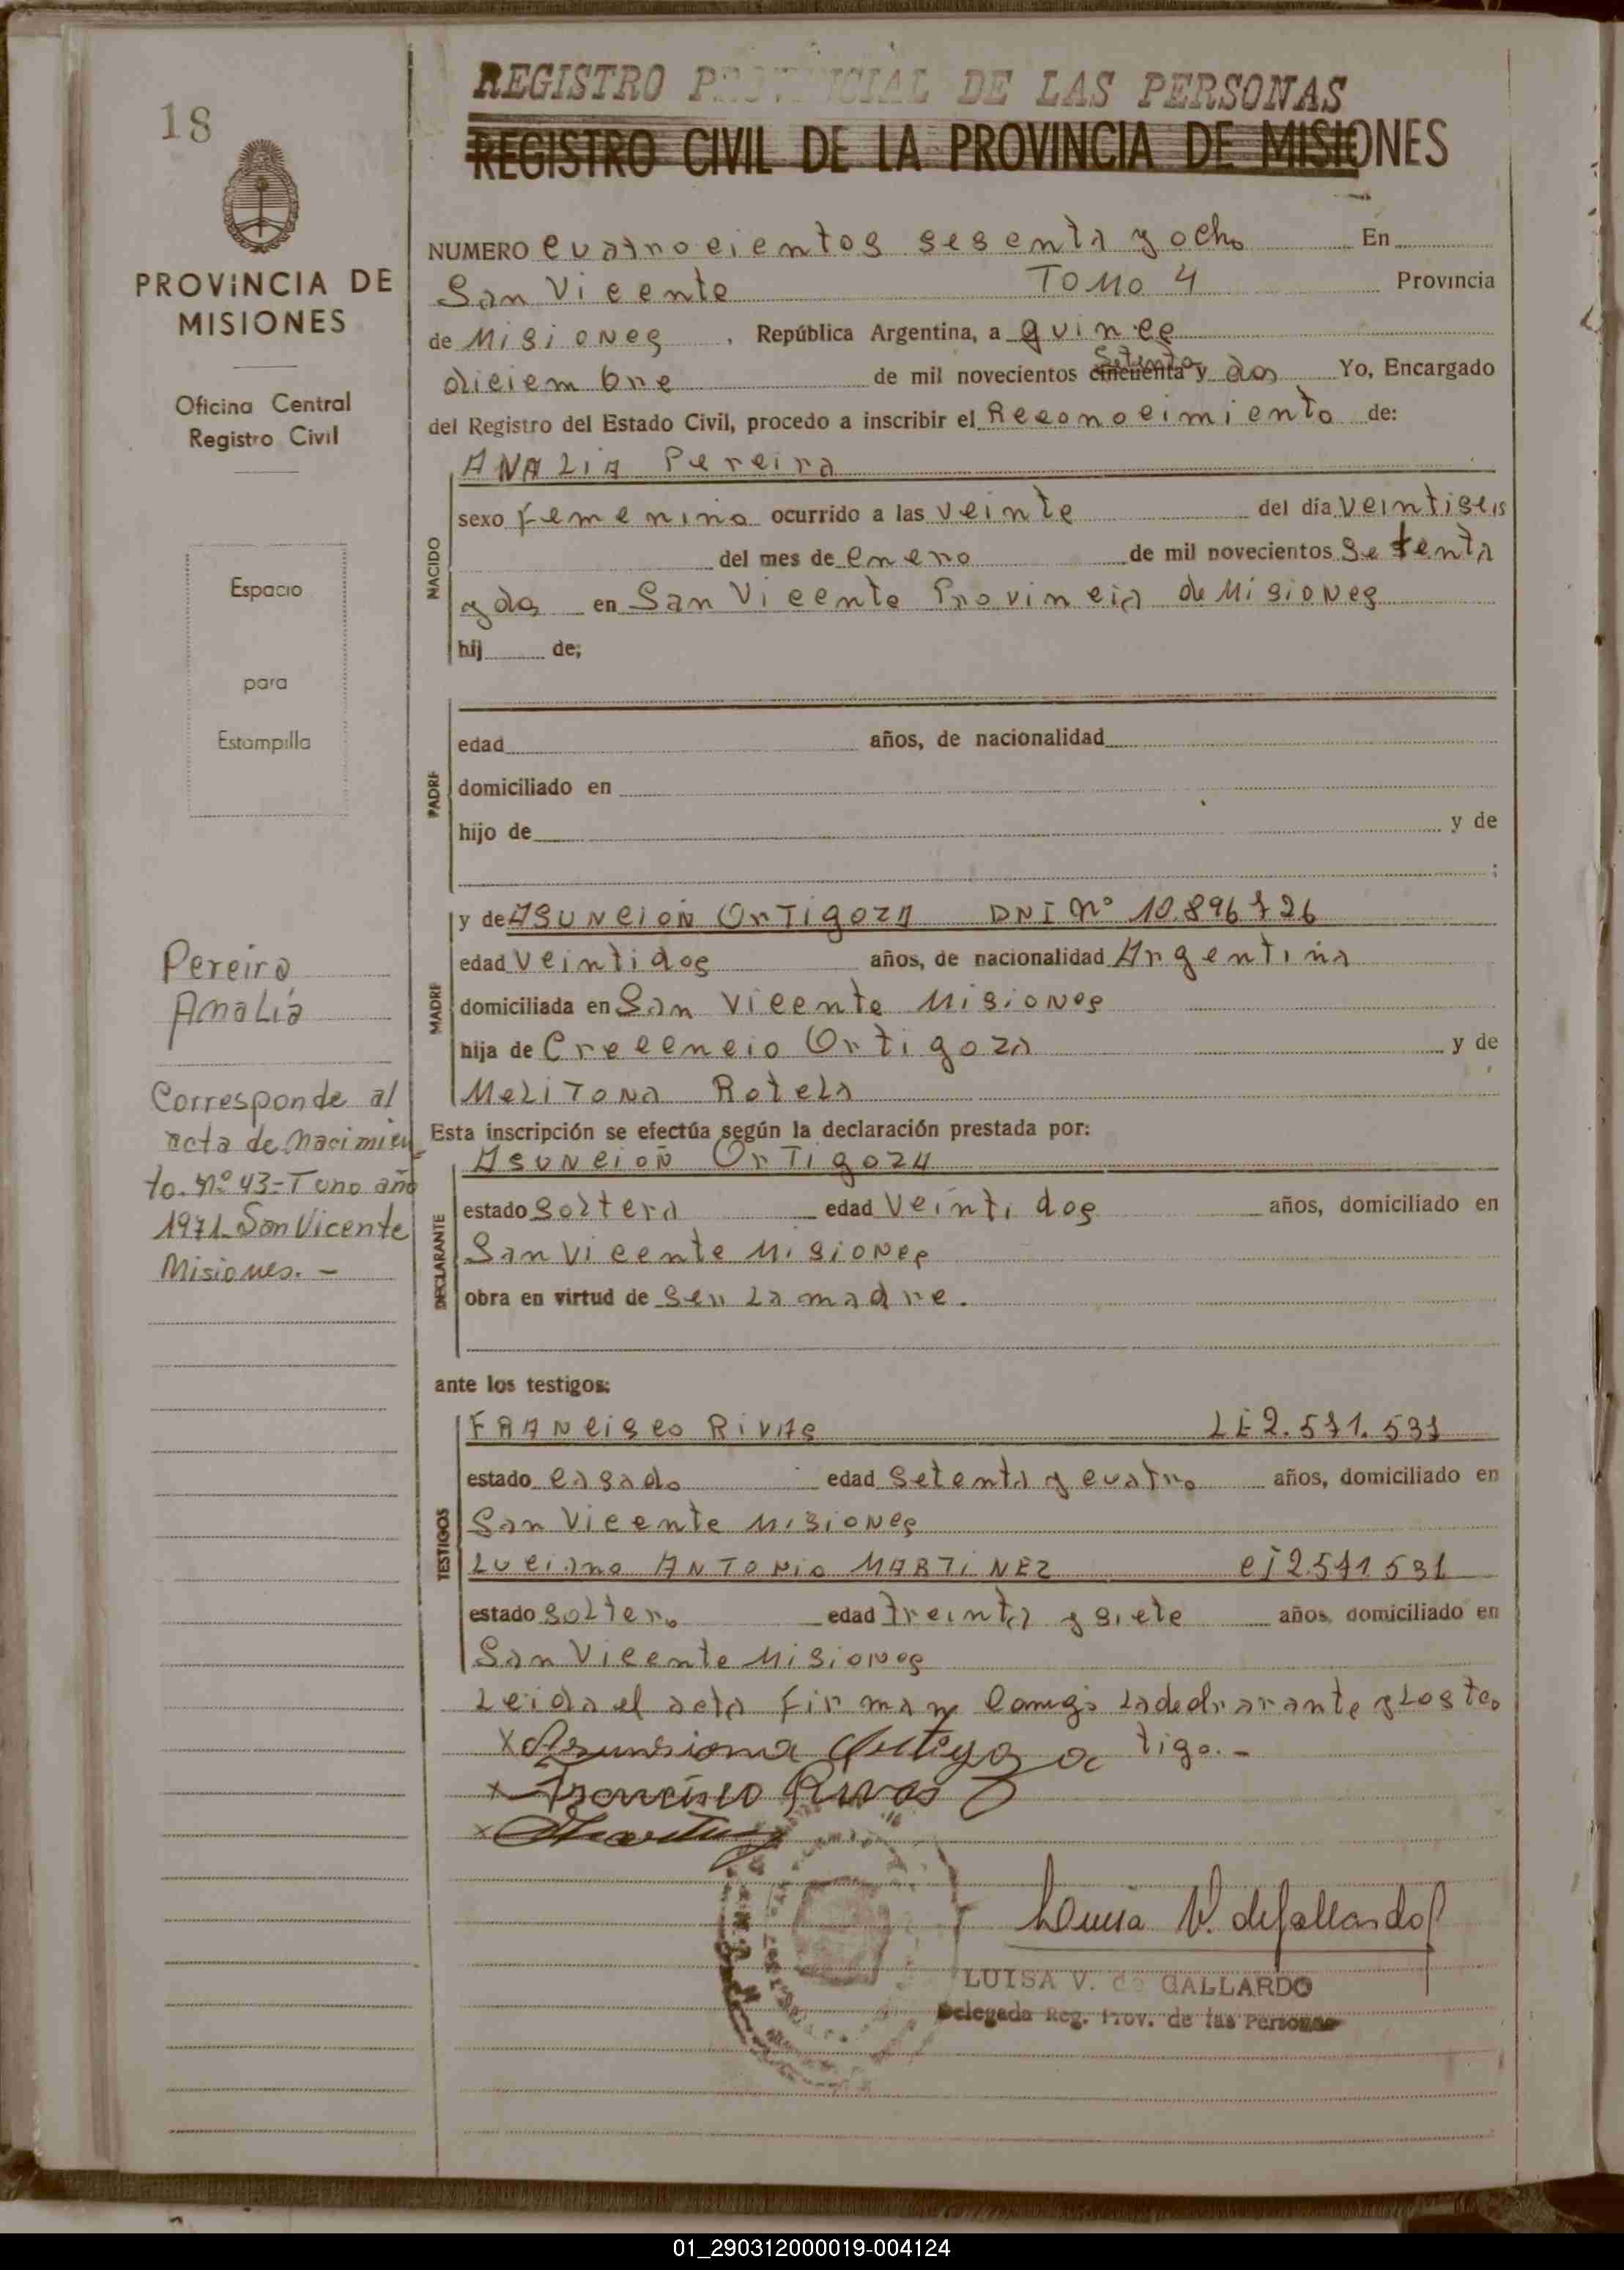 18
PROVINCIA DE
MISIONES
Oficina Central
Registro Civil
Espacio
para
Estampilla
Pereira
Analía
Corresponde al
acta de nacimien
to. Nº 43-T uno año
1971 San Vicente
Misiones. -
REGISTRO PROVINCIAL DE LAS PERSONAS
REGISTRO CIVIL DE LA PROVINCIA DE MISIONES
NUMERO cuatrocientos sesenta y ocho En
San Vicente TOMO 4 Provincia
de Misiones, República Argentina, a quince
Setenta
diciembre de mil novecientos cincuenta y dos Yo, Encargado
del Registro del Estado Civil, procedo a inscribir el Reconocimiento de:
NACIDO
ANALIA Pereira
sexo femenino ocurrido a las veinte del día veintiseis
del mes de enero de mil novecientos setenta
y dos en San Vicente Provincia de Misiones
hij de;
PADRE
edad años, de nacionalidad
domiciliado en
hijo de y de
;
MADRE
y de ASUNCION ORTIGOZA DNI Nº 10.896726
edad veintidos años, de nacionalidad Argentina
domiciliada en San Vicente Misiones
hija de Crecencio Ortigoza y de
Melitona Rotela
Esta inscripción se efectúa según la declaración prestada por:
DECLARANTE
ASUNCION ORTIGOZA
estado soltera edad veintidos años, domiciliado en
San Vicente Misiones
obra en virtud de ser la madre.
ante los testigos:
TESTIGOS
FRANCISCO RIVAS LE 2.571.537
estado casado edad setenta y cuatro años, domiciliado en
San Vicente Misiones
Luciano ANTONIO MARTINEZ CI 2571531
estado soltero edad treinta y siete años, domiciliado en
San Vicente Misiones
Leida el acta firman conmigo la declarante y los tes
tigo. -
X Asunsiona Ortigoza
x Francisco Rivas
x
Luisa V. de Gallardo
LUISA V. de GALLARDO
Delegada Reg. Prov. de las Personas
01_290312000019-004124